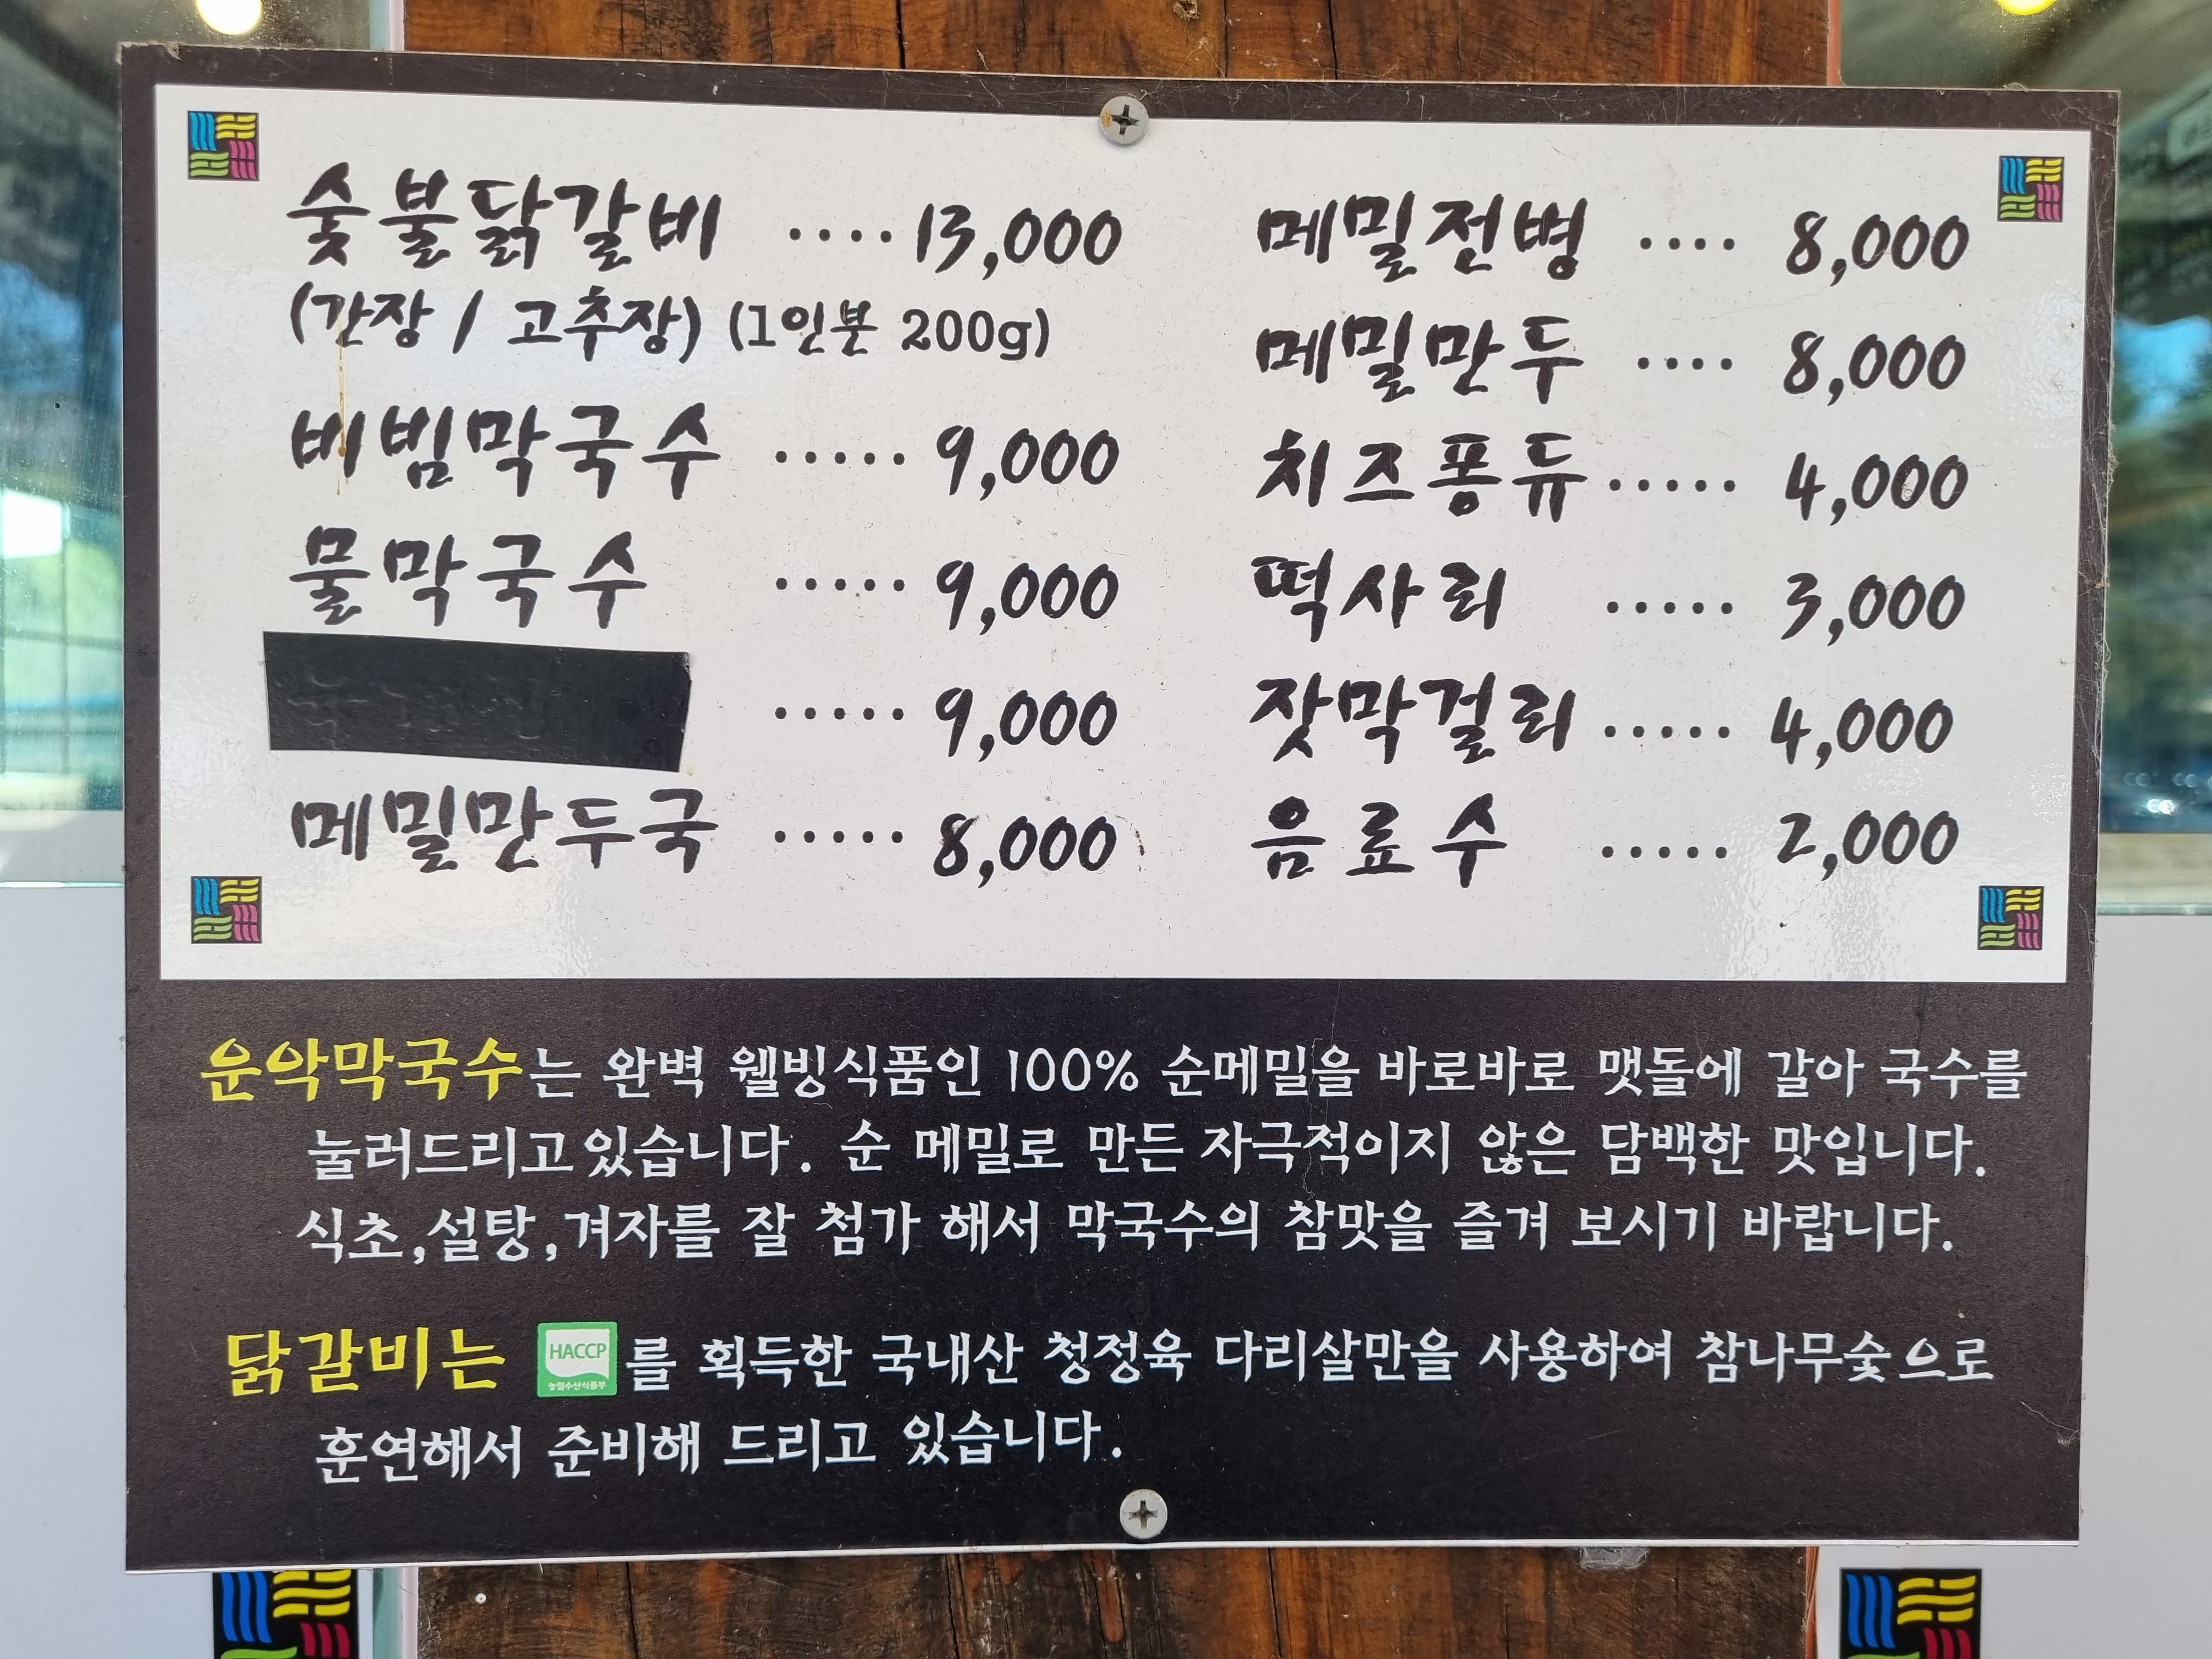 숯불닭갈비 ···· 13,000
(간장 / 고추장) (1인분 200g)
비빔막국수 ····· 9,000
물막국수 ····· 9,000
····· 9,000
메밀만두국 ····· 8,000
메밀전병 ···· 8,000
메밀만두 ···· 8,000
치즈퐁듀 ····· 4,000
떡사리 ····· 3,000
잣막걸리 ····· 4,000
음료수 ····· 2,000
운악막국수는 완벽 웰빙식품인 100% 순메밀을 바로바로 맷돌에 갈아 국수를
눌러드리고 있습니다. 순 메밀로 만든 자극적이지 않은 담백한 맛입니다.
식초,설탕,겨자를 잘 첨가 해서 막국수의 참맛을 즐겨 보시기 바랍니다.
닭갈비는 HACCP 농림수산식품부 를 획득한 국내산 청정육 다리살만을 사용하여 참나무숯으로
훈연해서 준비해 드리고 있습니다.